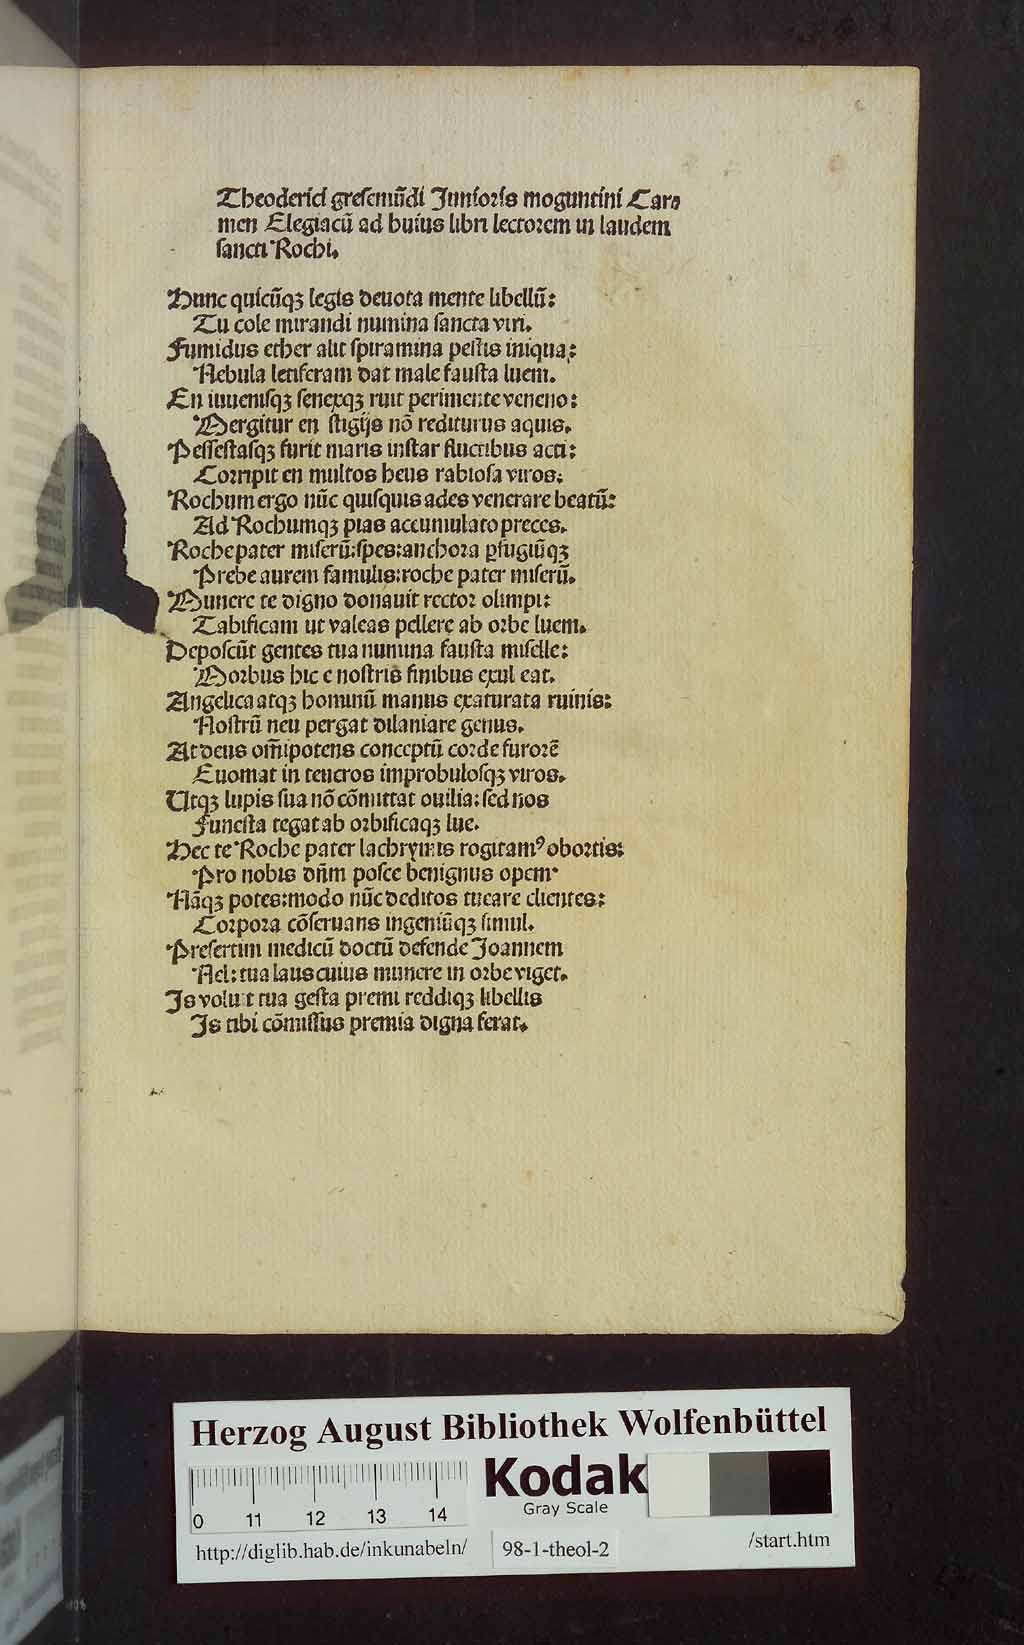 Theoderici gresemūdi Junioris moguntini Car⸗
men Elegiacū ad huius libri lectorem in laudem
sancti Rochi.
Hunc quicūqꝫ legis deuota mente libellū:
Tu cole mirandi numina sancta viri.
Fumidus ether alit spiramina pestis iniqua:
Nebula letiferam dat male fausta luem.
En iuuenisqꝫ senexqꝫ ruit perimente veneno:
Mergitur en stigijs nō rediturus aquis.
Pessestasqꝫ furit maris instar fluctibus acti:
Corripit en multos heus rabiosa viros:
Rochum ergo nūc quisquis ades venerare beatū:
Ad Rochumqꝫ pias accumulato preces.
Roche pater miserū:spes:anchora ꝑfugiūqꝫ
Prebe aurem famulis:roche pater miserū.
Munere te digno donauit rector olimpi:
Tabificam ut valeas pellere ab orbe luem.
Deposcūt gentes tua numina fausta miselle:
Morbus hic e nostris finibus exul eat.
Angelica atqꝫ hominū manus exaturata ruinis:
Nostrū neu pergat dilaniare genus.
At deus om̄ipotens conceptū corde furorē
Euomat in teucros improbulosqꝫ viros.
Utqꝫ lupis sua nō cōmittat ouilia: sed nos
Funesta tegat ab orbificaqꝫ lue.
Hec te Roche pater lachrymis rogitamꝰ obortis:
Pro nobis dn̄m posce benignus opem·
Nāqꝫ potes:modo nūc deditos tueare clientes:
Corpora cōseruans ingeniūqꝫ simul.
Presertim medicū doctū defende Joannem
Nel: tua laus cuius munere in orbe viget.
Is voluit tua gesta premi reddiqꝫ libellis
Is tibi cōmissus premia digna ferat.
Herzog August Bibliothek Wolfenbüttel
Kodak
Gray Scale
0 11 12 13 14
http://diglib.hab.de/inkunabeln/ 98-1-theol-2 /start.htm